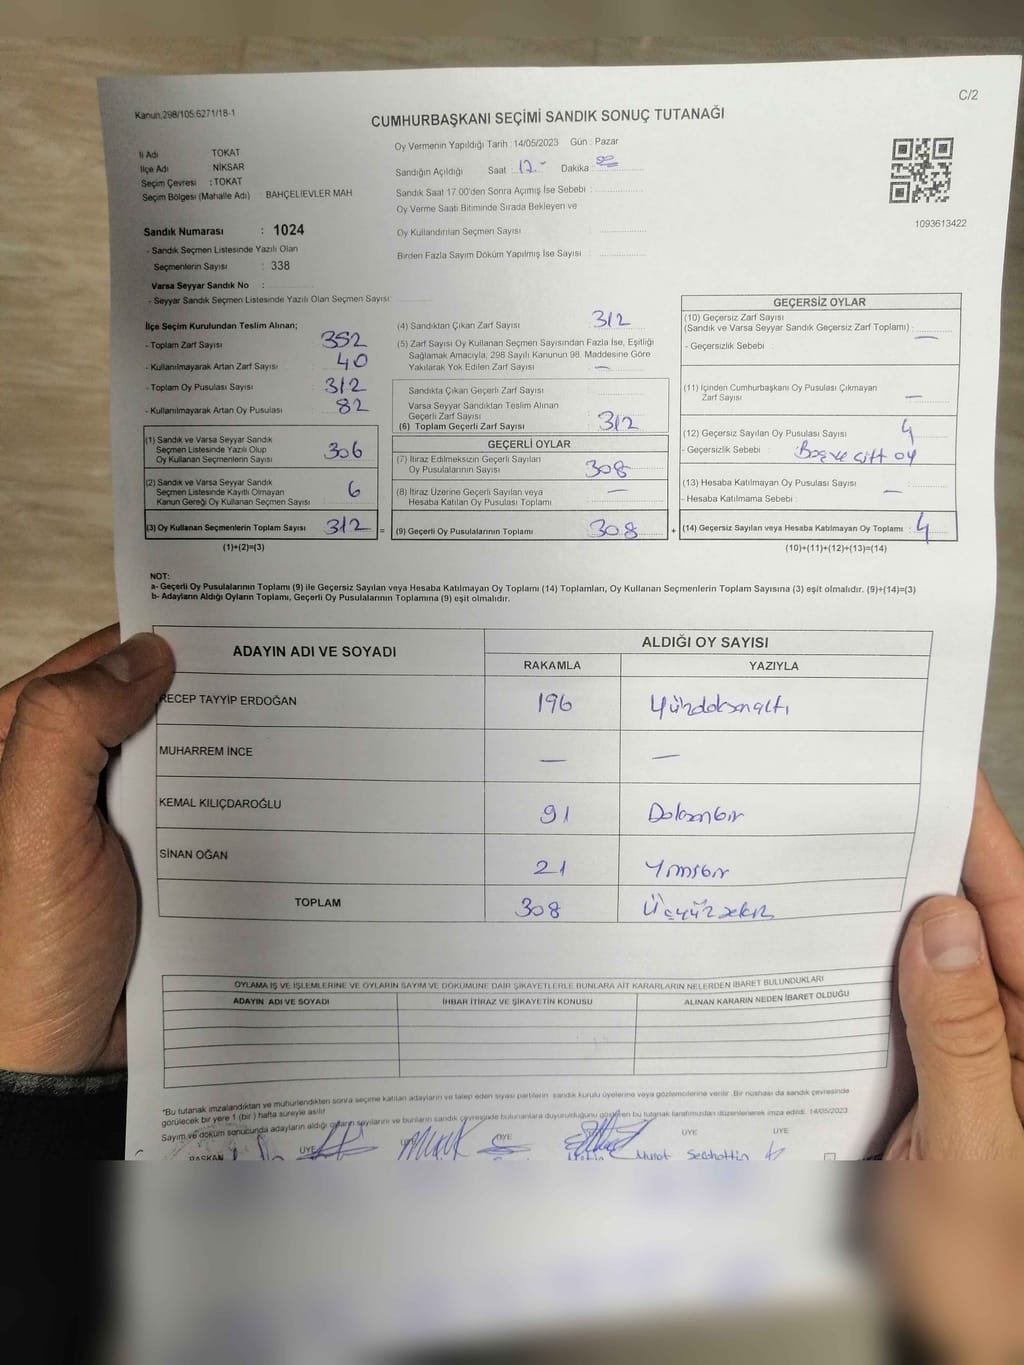 Kanun,298/105.6271/18-1
C/2
CUMHURBAŞKANI SEÇİMİ SANDIK SONUÇ TUTANAĞI
İl Adı TOKAT
İlçe Adı NİKSAR
Seçim Çevresi : TOKAT
Seçim Bölgesi (Mahalle Adı) : BAHÇELİEVLER MAH
Oy Vermenin Yapıldığı Tarih : 14/05/2023 Gün : Pazar
Sandığın Açıldığı Saat : 17.- Dakika :
Sandık Saat 17.00'den Sonra Açımış İse Sebebi :
Oy Verme Saati Bitiminde Sırada Bekleyen ve
Oy Kullandırılan Seçmen Sayısı :
Birden Fazla Sayım Döküm Yapılmış İse Sayısı :
1093613422
Sandık Numarası : 1024
- Sandık Seçmen Listesinde Yazılı Olan
Seçmenlerin Sayısı : 338
Varsa Seyyar Sandık No :
- Seyyar Sandık Seçmen Listesinde Yazılı Olan Seçmen Sayısı :
İlçe Seçim Kurulundan Teslim Alınan;
- Toplam Zarf Sayısı : 352
- Kullanılmayarak Artan Zarf Sayısı : 40
- Toplam Oy Pusulası Sayısı : 312
- Kullanılmayarak Artan Oy Pusulası : 82
(1) Sandık ve Varsa Seyyar Sandık
Seçmen Listesinde Yazılı Olup
Oy Kullanan Seçmenlerin Sayısı : 306
(2) Sandık ve Varsa Seyyar Sandık
Seçmen Listesinde Kayıtlı Olmayan
Kanun Gereği Oy Kullanan Seçmen Sayısı : 6
(3) Oy Kullanan Seçmenlerin Toplam Sayısı : 312 =
(1)+(2)=(3)
(4) Sandıktan Çıkan Zarf Sayısı : 312
(5) Zarf Sayısı Oy Kullanan Seçmen Sayısından Fazla İse, Eşitliği
Sağlamak Amacıyla, 298 Sayılı Kanunun 98. Maddesine Göre
Yakılarak Yok Edilen Zarf Sayısı : —
Sandıkta Çıkan Geçerli Zarf Sayısı :
Varsa Seyyar Sandıktan Teslim Alınan
Geçerli Zarf Sayısı :
(6) Toplam Geçerli Zarf Sayısı : 312
GEÇERLİ OYLAR
(7) İtiraz Edilmeksizin Geçerli Sayılan
Oy Pusulalarının Sayısı : 308
(8) İtiraz Üzerine Geçerli Sayılan veya
Hesaba Katılan Oy Pusulası Toplamı : —
(9) Geçerli Oy Pusulalarının Toplamı : 308 +
GEÇERSİZ OYLAR
(10) Geçersiz Zarf Sayısı
(Sandık ve Varsa Seyyar Sandık Geçersiz Zarf Toplamı) : —
- Geçersizlik Sebebi :
(11) İçinden Cumhurbaşkanı Oy Pusulası Çıkmayan
Zarf Sayısı : —
(12) Geçersiz Sayılan Oy Pusulası Sayısı : 4
- Geçersizlik Sebebi : Boş ve çift oy
(13) Hesaba Katılmayan Oy Pusulası Sayısı : —
- Hesaba Katılmama Sebebi :
(14) Geçersiz Sayılan veya Hesaba Katılmayan Oy Toplamı : 4
(10)+(11)+(12)+(13)=(14)
NOT:
a- Geçerli Oy Pusulalarının Toplamı (9) ile Geçersiz Sayılan veya Hesaba Katılmayan Oy Toplamı (14) Toplamları, Oy Kullanan Seçmenlerin Toplam Sayısına (3) eşit olmalıdır. (9)+(14)=(3)
b- Adayların Aldığı Oyların Toplamı, Geçerli Oy Pusulalarının Toplamına (9) eşit olmalıdır.
ADAYIN ADI VE SOYADI ALDIĞI OY SAYISI
RAKAMLA YAZIYLA
RECEP TAYYİP ERDOĞAN 196 Yüzdoksanaltı
MUHARREM İNCE — —
KEMAL KILIÇDAROĞLU 91 Doksanbir
SİNAN OĞAN 21 Yirmibir
TOPLAM 308 Üçyüzsekiz
OYLAMA İŞ VE İŞLEMLERİNE VE OYLARIN SAYIM VE DÖKÜMÜNE DAİR ŞİKAYETLERLE BUNLARA AİT KARARLARIN NELERDEN İBARET BULUNDUKLARI
ADAYIN ADI VE SOYADI İHBAR İTİRAZ VE ŞİKAYETİN KONUSU ALINAN KARARIN NEDEN İBARET OLDUĞU
*Bu tutanak imzalandıktan ve mühürlendikten sonra seçime katılan adayların ve talep eden siyasi partilerin sandık kurulu üyelerine veya gözlemcilerine verilir. Bir nüshası da sandık çevresinde
görülecek bir yere 1 (bir) hafta süreyle asılır
Sayım ve döküm sonucunda adayların aldığı oyların sayılarını ve bunların sandık çevresinde bulunanlara duyurulduğunu gösteren bu tutanak tarafımızdan düzenlenerek imza edildi. 14/05/2023
BAŞKAN ÜYE ÜYE ÜYE ÜYE ÜYE
Murat